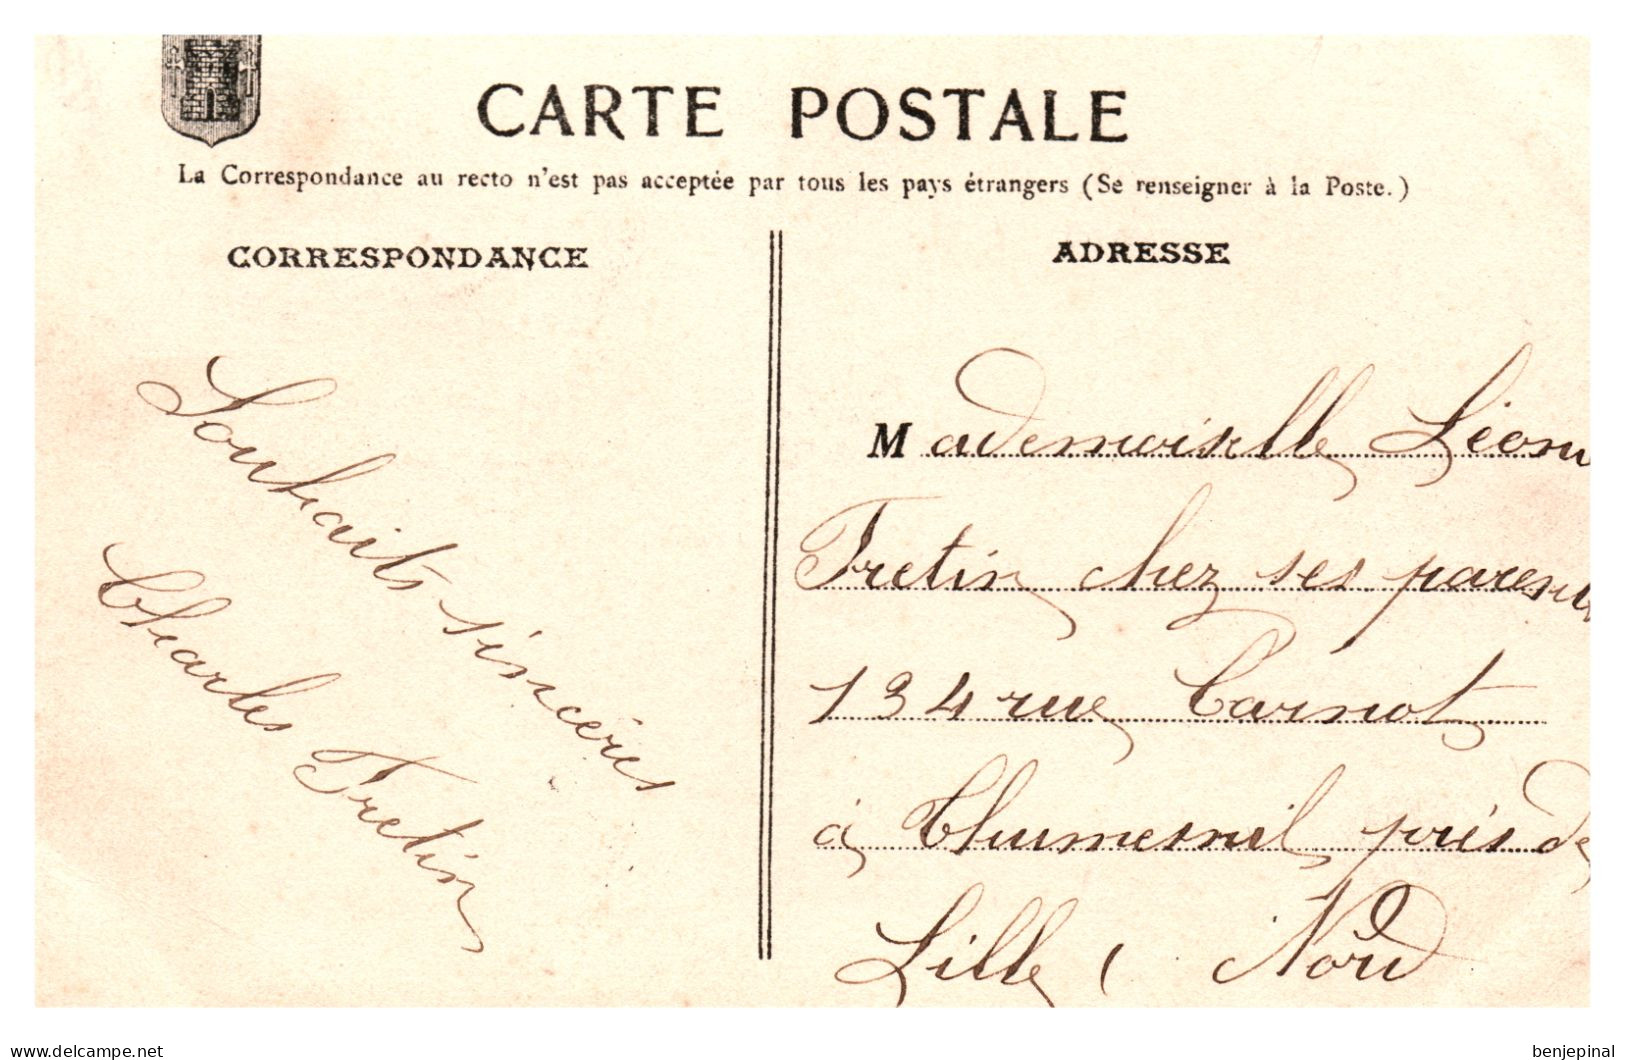 CARTE POSTALE
La Correspondance au recto n'est pas acceptée par tous les pays étrangers (Se renseigner à la Poste.)
CORRESPONDANCE
Souhaits sincères
Charles Tretin
ADRESSE
Mademoiselle
Tretin chez ses parents
134 rue Carnot
à Thumesnil près de
Lille ( Nord
www.delcampe.net
benjepinal